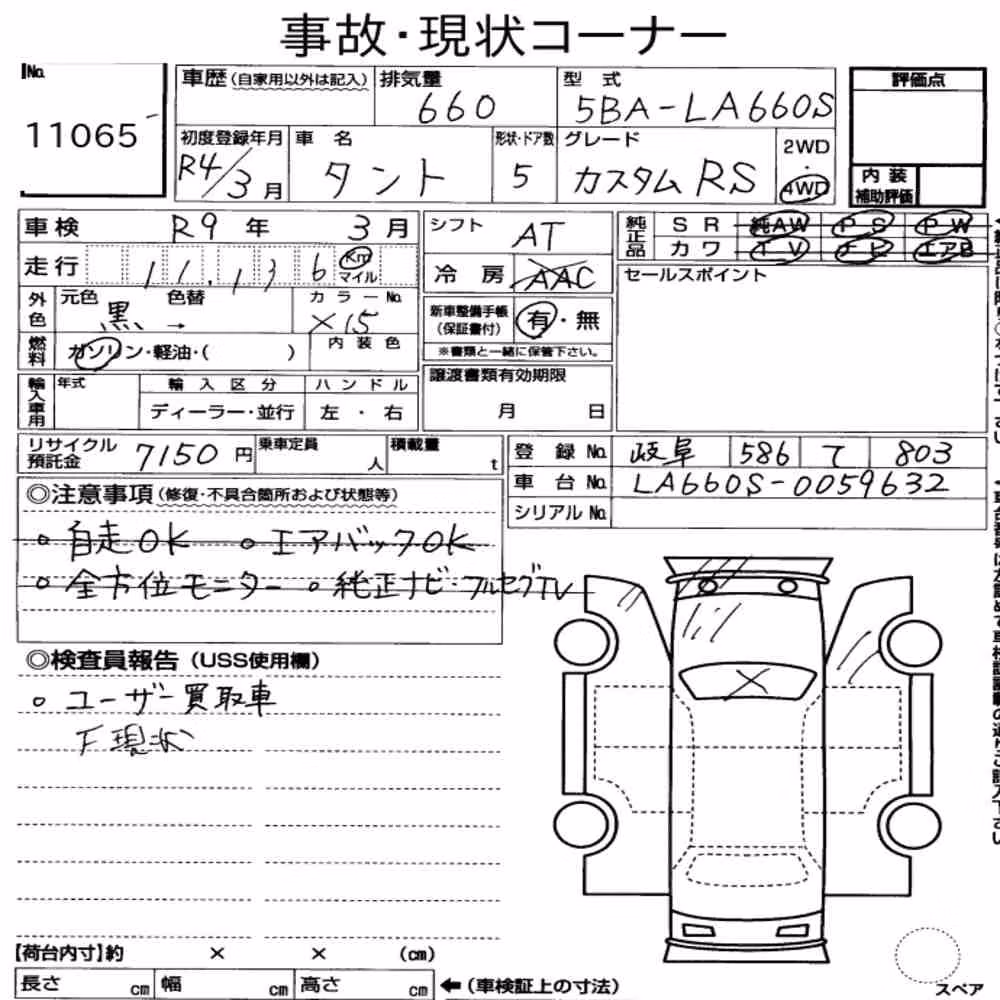 事故・現状コーナー
No. 11065
車歴(自家用以外は記入) 排気量 660 型式 5BA-LA660S 評価点
初度登録年月 R4/3月 車名 タント 形状・ドア数 5 グレード カスタムRS 2WD・4WD
内装補助評価
車検 R9年 3月 シフト AT 純正品 SR 純AW PS PW
カワ TV ナビ エアB
走行 11,136 Km マイル 冷房 AAC セールスポイント
外色 元色 黒 色替 → カラーNo. X15 新車整備手帳(保証書付) 有・無
※書類と一緒に保管下さい。
燃料 ガソリン・軽油・( ) 内装色
輸入車用 年式 輸入区分 ハンドル 譲渡書類有効期限
ディーラー・並行 左・右 月 日
リサイクル預託金 7150円 乗車定員 人 積載量 t
登録No. 岐阜 586 て 803
車台No. LA660S-0059632
シリアルNo.
◎注意事項(修復・不具合箇所および状態等)
○ 自走OK ○ エアバックOK
○ 全方位モニター ○ 純正ナビ・フルセグTV
◎検査員報告(USS使用欄)
○ ユーザー買取車
下現状
【荷台内寸】約 × × (cm)
長さ cm 幅 cm 高さ cm ←(車検証上の寸法)
スペア